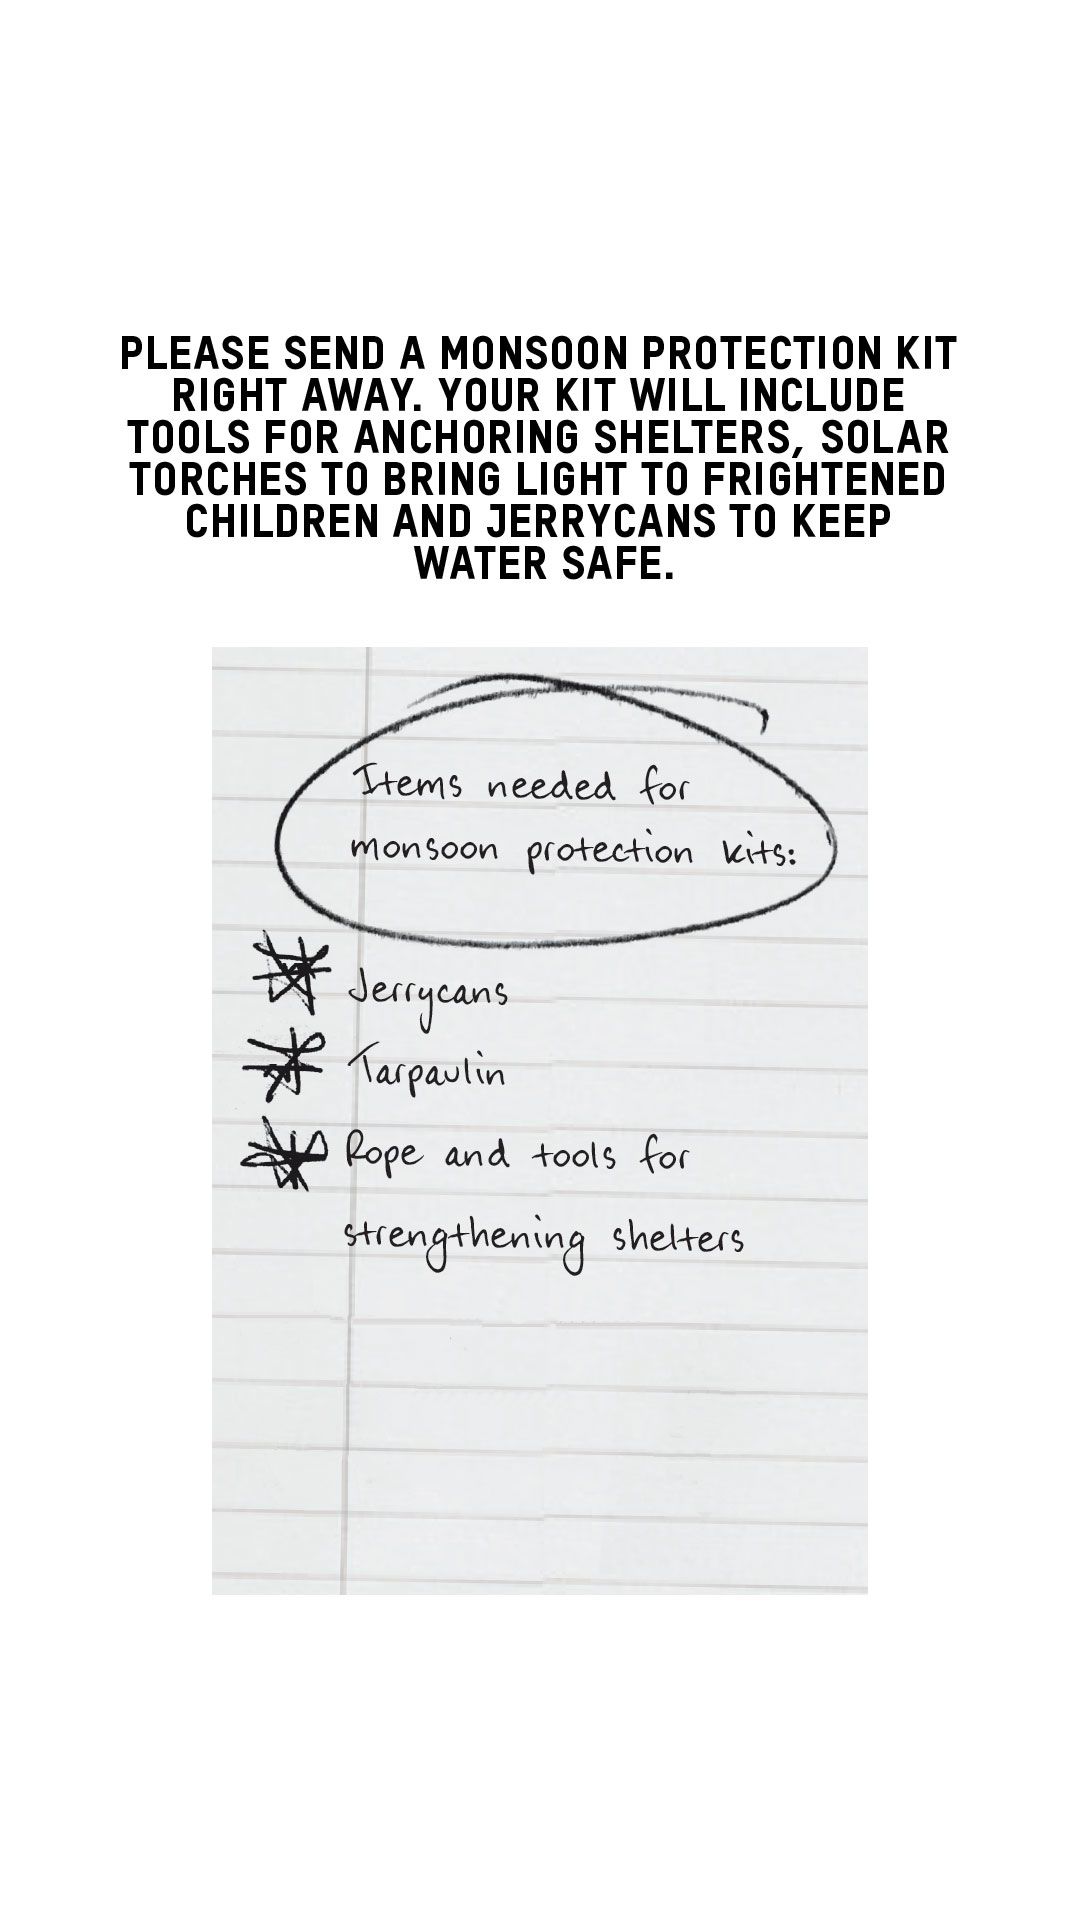 PLEASE SEND A MONSOON PROTECTION KIT
RIGHT AWAY. YOUR KIT WILL INCLUDE
TOOLS FOR ANCHORING SHELTERS, SOLAR
TORCHES TO BRING LIGHT TO FRIGHTENED
CHILDREN AND JERRYCANS TO KEEP
WATER SAFE.
Items needed for
monsoon protection kits:
Jerrycans
Tarpaulin
Rope and tools for
strengthening shelters